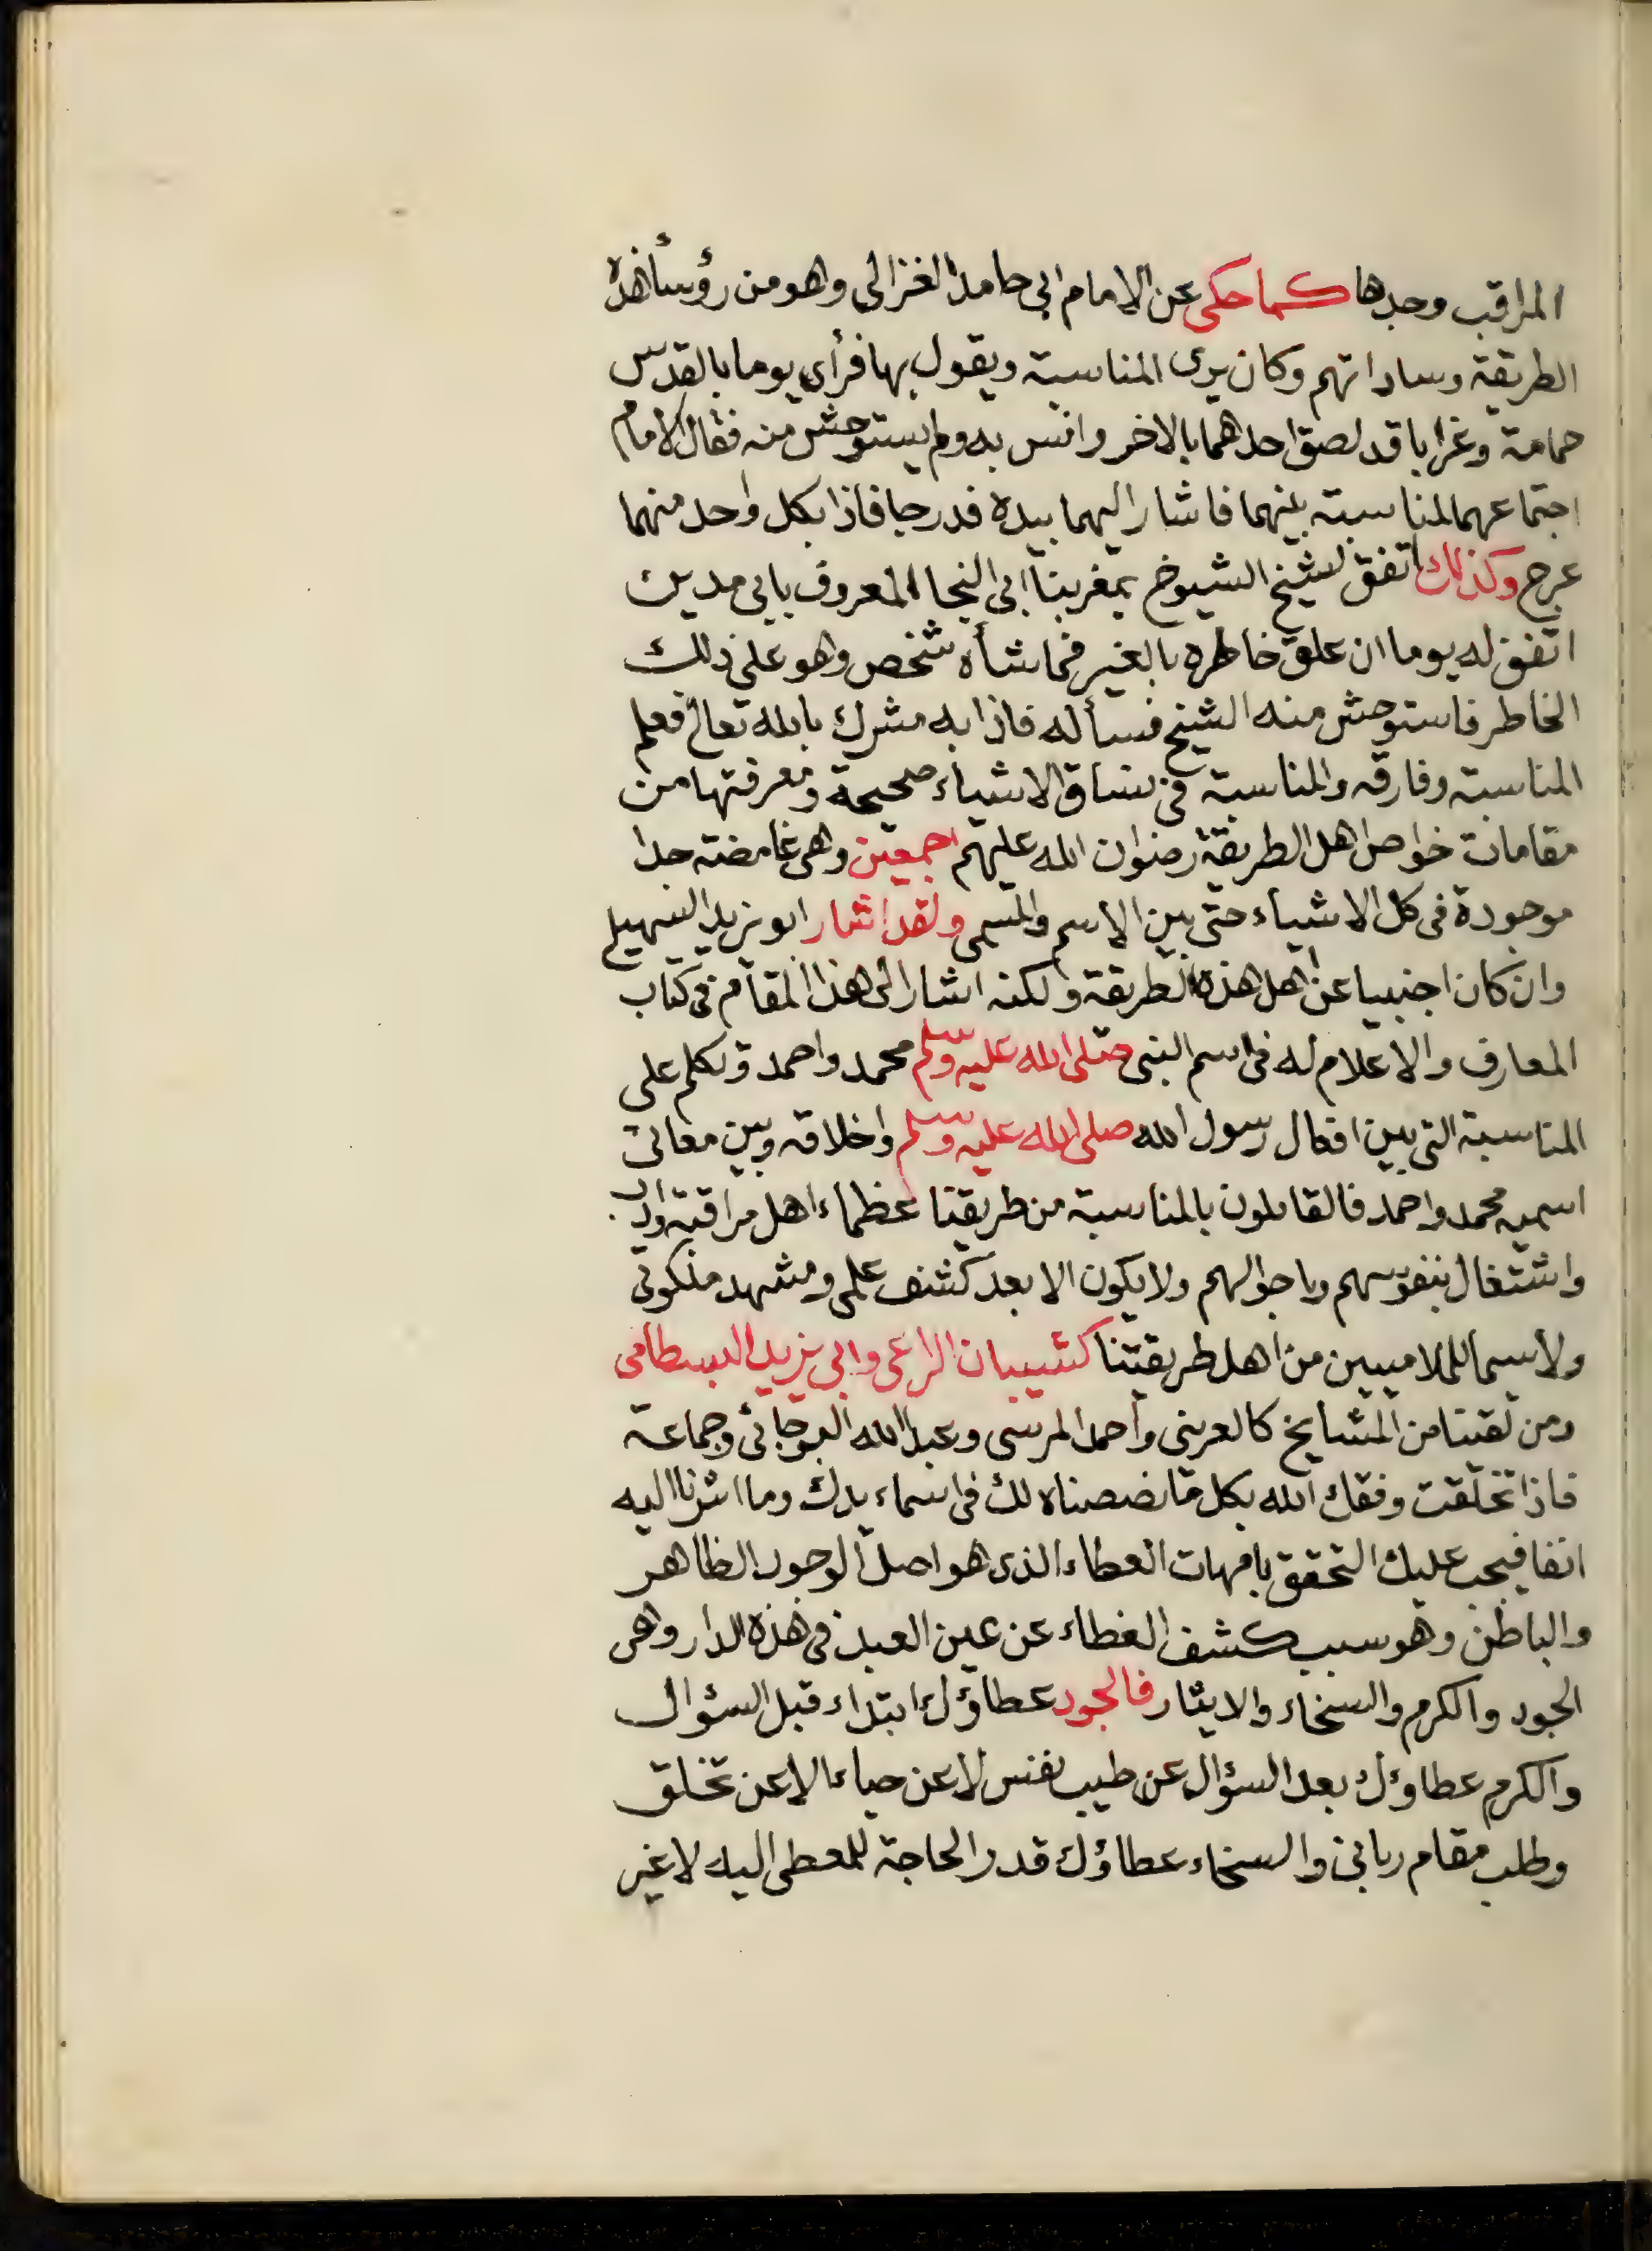 المراقب وجدها كما حكى عن الامام ابى حامد الغزالى وهو من رؤساء هذه
الطريقة وساداتهم وكان يرى المناسبة ويقول بها فرأى يوما بالقدس
حمامة وغرابا قد لصق احدهما بالاخر وانس به ولم يستوحش منه فقال الامام
اجتماعهما لمناسبة بينهما فاشار اليهما بيده فدرجا فاذا بكل واحد منهما
عرج وكذلك اتفق لشيخ الشيوخ بمغربنا ابى النجا المعروف بابى مدين
اتفق له يوما ان علق خاطره بالغير فماشاه شخص وهو على ذلك
الخاطر فاستوحش منه الشيخ فسأله فاذا به مشرك بالله تعالى فعلم
المناسبة وفارقه والمناسبة فى مساق الاشياء صحيحة ومعرفتها من
مقامات خواص اهل الطريقة رضوان الله عليهم اجمعين وهى غامضة جدا
موجودة فى كل الاشياء حتى بين الاسم والمسمى ولقد اشار ابو يزيد السهيلى
وان كان اجنبيا عن اهل هذه الطريقة ولكنه اشار الى هذا المقام فى كتاب
المعارف والاعلام له فى اسم النبى صلى الله عليه وسلم محمد واحمد وتكلم على
المناسبة التى بين افعال رسول الله صلى الله عليه وسلم واخلاقه وبين معانى
اسميه محمد واحمد فالقائلون بالمناسبة من طريقنا عظماء اهل مراقبة وادب
واشتغال بنفوسهم وباحوالهم ولا يكون الا بعد كشف علمى ومشهد ملكوتى
ولاسيما للملاميين من اهل طريقتنا كشيبان الراعى وابى يزيد البسطامى
ومن لقينا من المشايخ كالعرينى واحمد المرسى وعبد الله البرجانى وجماعة
فاذا تخلقت وفقك الله بكل ما نصصناه لك فى اسماء يدك وما اشرنا اليه
انفا فيجب عليك التحقق بامهات العطاء الذى هو اصل الوجود الظاهر
والباطن وهو سبب كشف الغطاء عن عين العبد فى هذه الدار وهى
الجود والكرم والسخاء والايثار فالجود عطاؤك ابتداء قبل السؤال
والكرم عطاوءك بعد السؤال عن طيب نفس لا عن حياء الا عن تخلق
وطلب مقام ربانى والسخاء عطاؤك قدر الحاجة للمعطى اليه لا غير